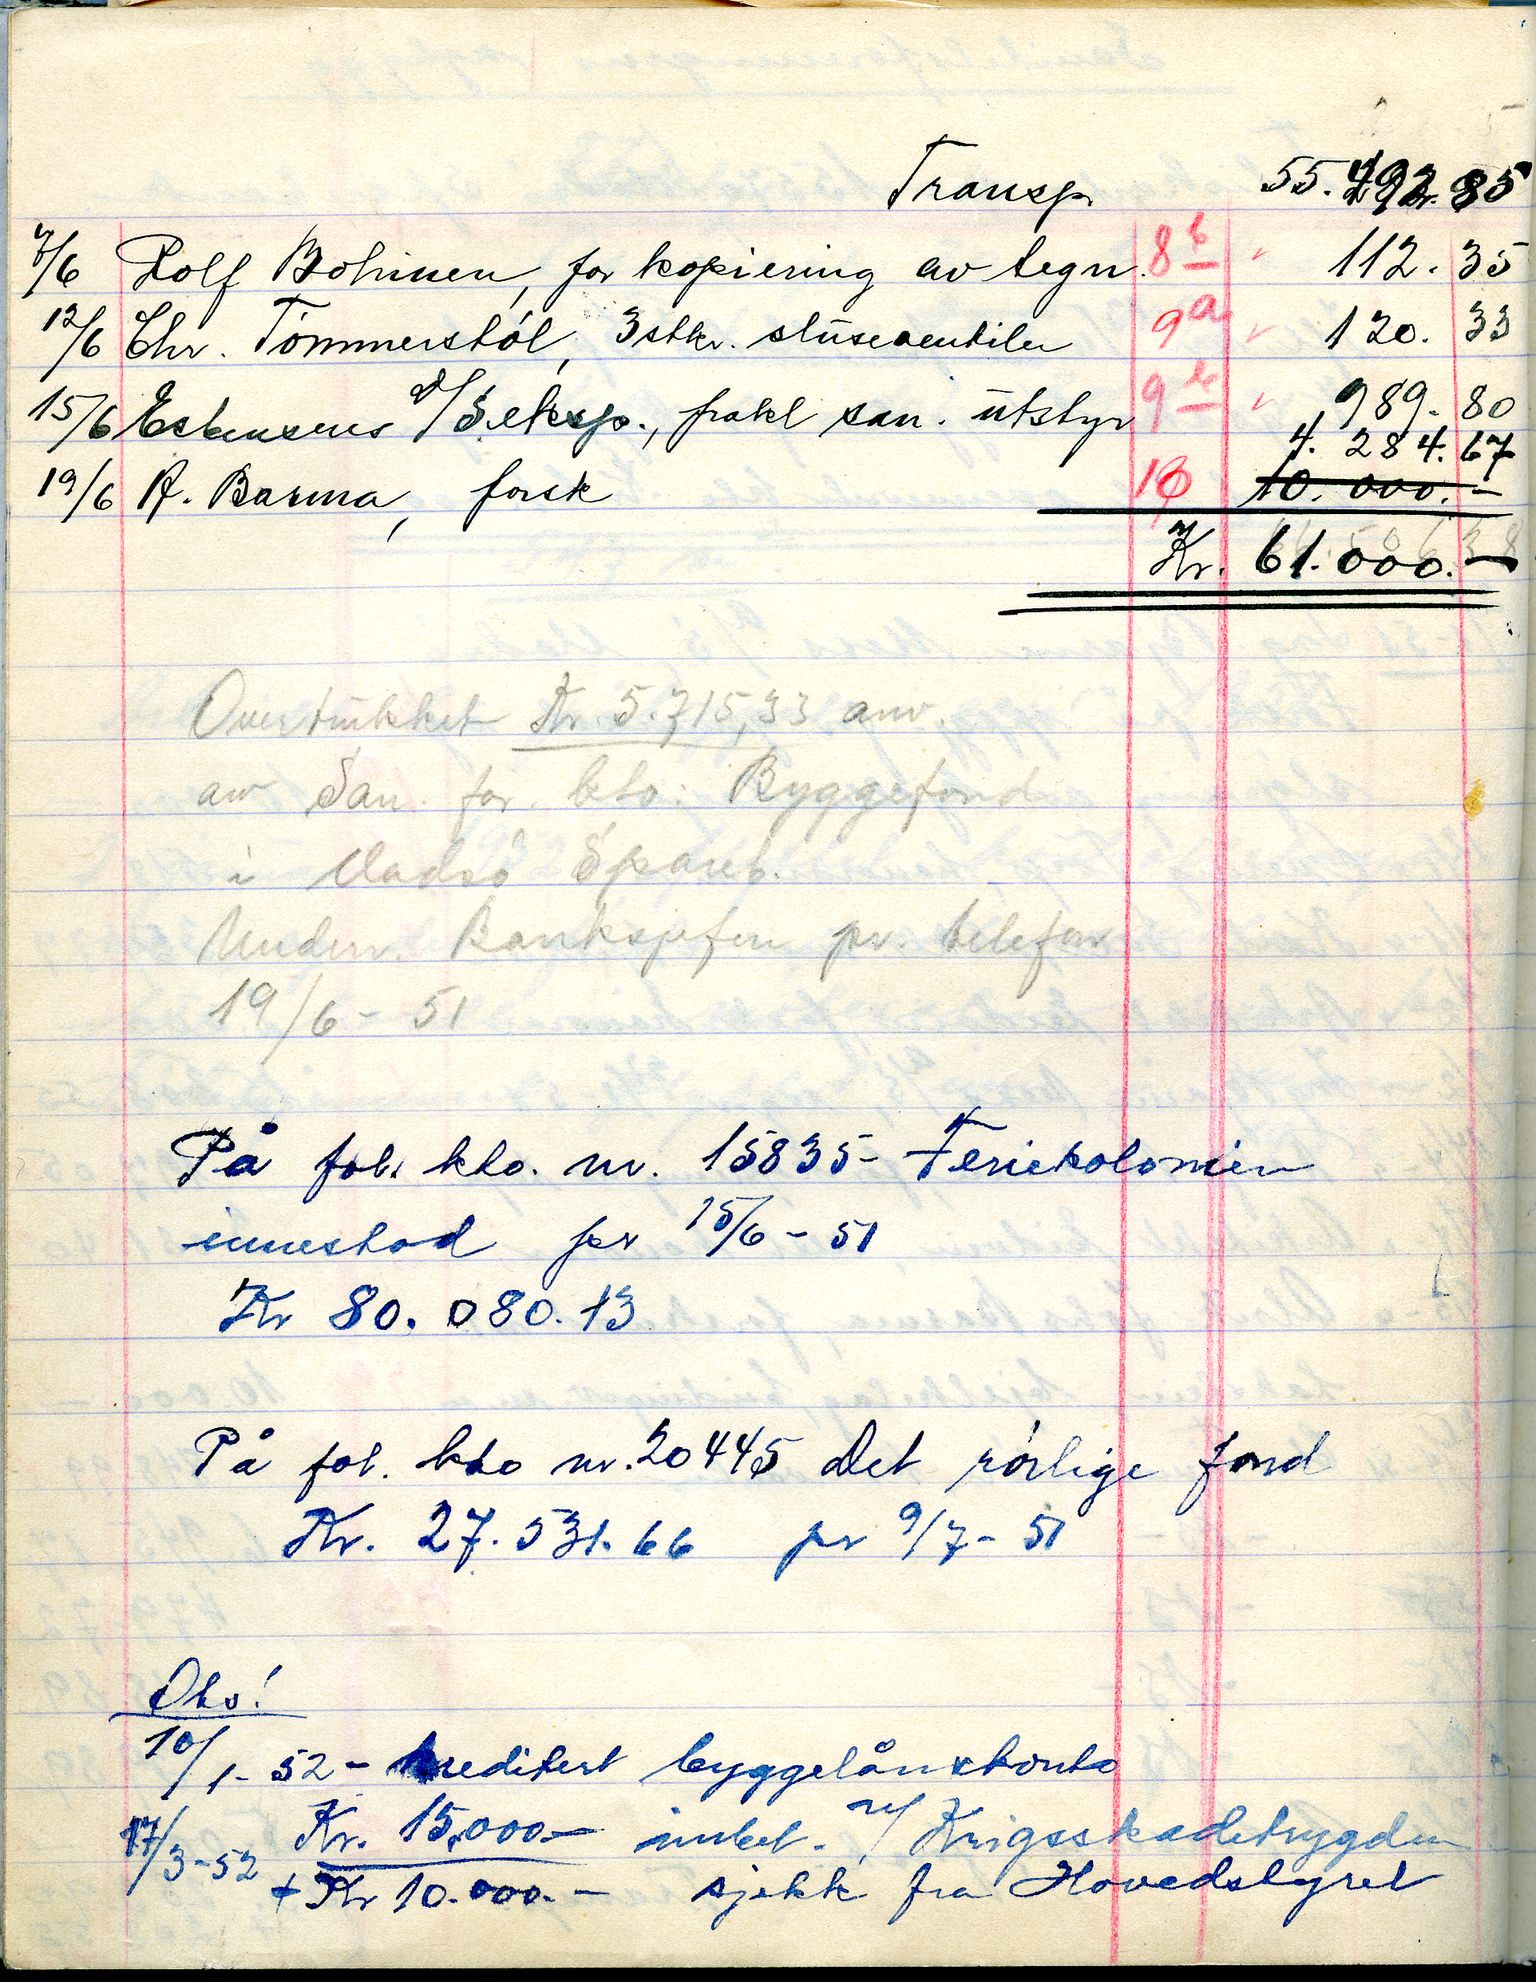 Transp. 55.492.85
7/6 Rolf Bohinen, for kopiering av tegn. 8b " 112.35
12/6 Chr. Tömmerstöl, 3 stkr. slüseventiler 9a " 120.33
15/6 Esbensens D/S.eksp., frakt san. ütstyr 9b " 989.80
4.284.67
19/6 A. Barma, forsk 10 10.000.-
Kr. 61.000.-
Overtrükket Kr. 5.715,33 anv.
av San. for. kto: Byggefond
i Vadsö Spareb.
Underr. Banksjefen pr. telefon
19/6 - 51
På fol. kto. nr. 15835 - Feriekolonien
innestod pr 15/6 - 51
Kr 80.080.13
På fol. kto nr. 20445 Det rörlige fond
Kr. 27.531.66 pr 9/7 - 51
Obs!
10/1 - 52 - kreditert byggelånskonto
Kr. 15.000.- innbet. v/ Krigsskadetrygden
17/3 - 52 + Kr 10.000.- sjekk fra Hovedstyret